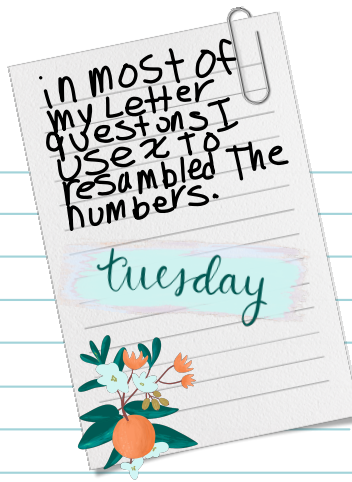 in most of
my Letter
questons I
use x to
resambled The
numbers.
tuesday